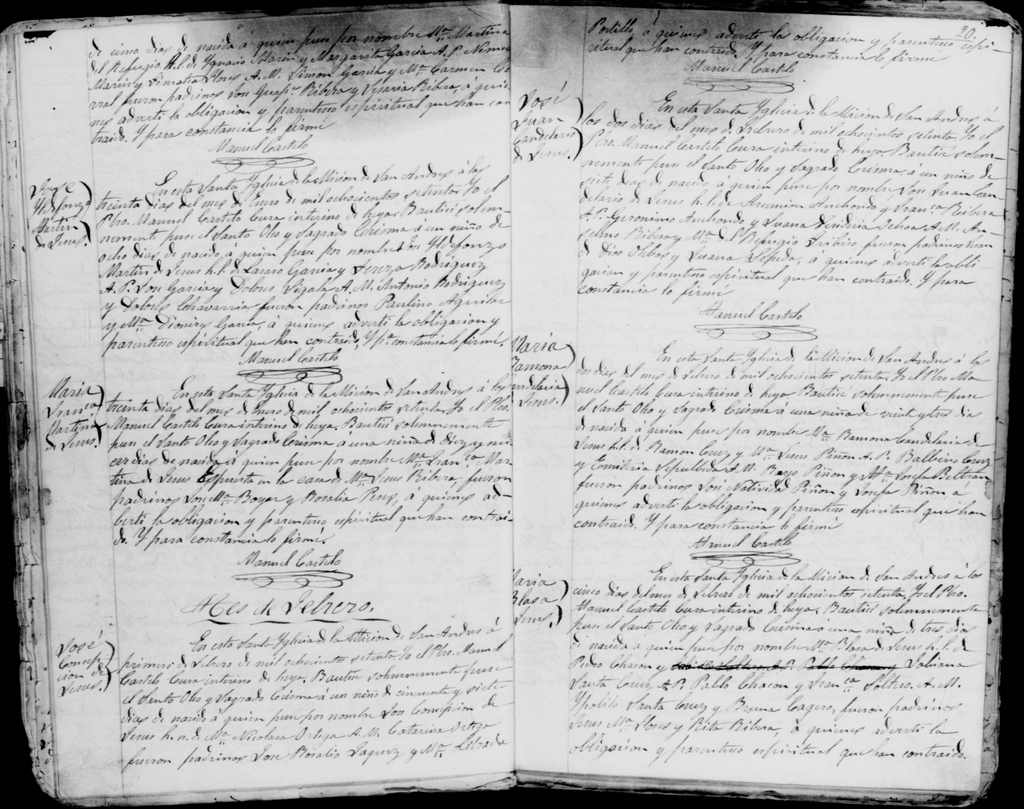 de cinco dias de nacida á quien puse por nombre Ma. Martina
del Refugio H.L. de Ygnacio Marin y Margarita Garcia A.P.
Marin y Flores A.M. Simon Garcia y Ma. Carmen
fueron padrinos Don Ribera y Maria Ribera, á quie-
nes advertí la obligacion y parentesco espiritual que han con-
traido. Y para constancia lo firmé
Manuel Castilo
Jose
Yldefonzo
Martin
de Jesus.
En esta Santa Yglecia de la Micion de San Andres á los
treinta dias del mes de Enero de mil ochocientos setenta Yo el
Pbro. Manuel Castilo Cura interino de hoya, Bautisé solem-
nemente puse el Santo Oleo y Sagrado Crisma á un niño de
ocho dias de nacido, á quien puse por nombre José Yldefonzo
Martin de Jesus h.l. de Lazaro Garcia y Rodriguez
A.P. Jose Garcia y Dolores A.M. Antonio Rodriguez
y Dolores Chavarria fueron padrinos Paulino Aguilar
y Ma. Dionicia Garcia, á quienes advertí la obligacion y
parentesco espiritual que han contraido, Y pa. constancia lo firmé.
Manuel Castilo
Maria
Franca.
Martina
de Jesus.
En esta Santa Yglecia de la Micion de San Andres á los
treinta dias del mes de Enero de mil ochocientos setenta Yo el Pbro.
Manuel Castilo Cura interino de hoya, Bautisé solemnemente
puse el Santo Oleo y Sagrado Crisma á una niña de
dias de nacida á quien puse por nombre Ma. Franca. Mar-
tina de Jesus Espuesta en la casa de Ma. Jesus Ribera, fueron
padrinos Jose Ma. Boyar y Rosalia Rey, á quienes ad-
bertí la obligacion y parentesco espiritual que han contrai-
do. Y para constancia lo firmé.
Manuel Castilo
Mes de Febrero.
José
Concep-
cion de
Jesus.
En esta Santa Yglecia de la Micion de San Andres á
primero de Febrero de mil ochocientos setenta Yo el Pbro. Manuel
Castilo Cura interino de hoya, Bautisé solemnemente puse
el Santo Oleo y Sagrado Crisma á un niño de cincuenta y siete
dias de nacido á quien puse por nombre Jose Concepcion de
Jesus h.n. de Ma. Nicolasa Ortega A.M. Catarina Ortega
fueron padrinos Jose Rosalio Vaquez y Ma. Librada
20.
Portillo, á quienes advertí la obligacion y parentesco espi-
ritual que han contraido. Y para constancia lo firmé
Manuel Castilo
José
Juan
Candelario
de Jesus.
En esta Santa Yglecia de la Micion de San Andres á
los dos dias del mes de Febrero de mil ochocientos setenta, Yo el
Pbro. Manuel Castilo Cura interino de hoya, Bautisé solem-
nemente puse el Santo Oleo y Sagrado Crisma á un niño de
siete dias de nacido á quien puse por nombre Jose Juan Can-
delario de Jesus h.l. de Anchondo y Franca. Ribera
A.P. Geronimo Anchondo y Juana A.M. An-
selmo Ribera y Ma. del Refugio fueron padrinos Juan
de Dios y Juana Zepeda, á quienes advertí la obli-
gacion y parentesco espiritual que han contraido. Y para
constancia lo firmé
Manuel Castilo
Maria
Ramona
Candelaria
de Jesus.
En esta Santa Yglecia de la Micion de San Andres á los
dos dias del mes de Febrero de mil ochocientos setenta, Yo el Pbro. Ma-
nuel Castilo Cura interino de hoya, Bautisé solemnemente puse
el Santo Oleo y Sagrado Crisma á una niña de veinte y tres dias
de nacida á quien puse por nombre Ma. Ramona Candelaria de
Jesus h.l. de Ramon Cruz y Ma. Jesus Piñon A.P. Balbino Cruz
y Sepulveda A.M. Piñon y Ma. Josefa Beltran,
fueron padrinos Jose Natividad Piñon y Josefa Piñon á
quienes advertí la obligacion y parentesco espiritual que han
contraido Y para constancia lo firmé
Manuel Castilo
Maria
Blasa
Jesus.
En esta Santa Yglecia de la Micion de San Andres á los
cinco dias del mes de Febrero de mil ochocientos setenta, Yo el Pbro.
Manuel Castilo Cura interino de hoya, Bautisé solemnemente
puse el Santo Oleo y Sagrado Crisma á una niña de tres dias
de nacida á quien puse por nombre Ma. Blasa de Jesus h.l. de
Pedro Chacon y A.P. Pablo Chacon y Fabiana
Santa Cruz A.P. Pablo Chacon y Franca. A.M.
Ypolito Santa Cruz y Bruna fueron padrinos
Jesus Ma. Flores y Rita Ribera, á quienes advertí la
obligacion y parentesco espiritual que han contraido.